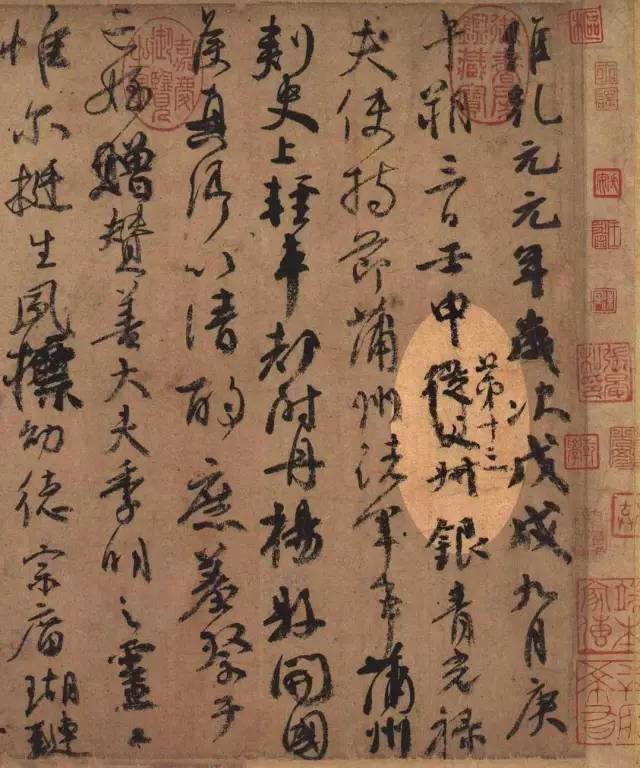 維乾元元年歲次戊戌九月庚
午朔三日壬申從父叔銀青光祿
第十三
夫使持節蒲州諸軍事蒲州
刺史上輕車都尉丹楊縣開國
侯真卿以清酌庶羞祭于
亡姪贈贊善大夫季明之靈曰
惟爾挺生夙標幼德宗廟瑚璉